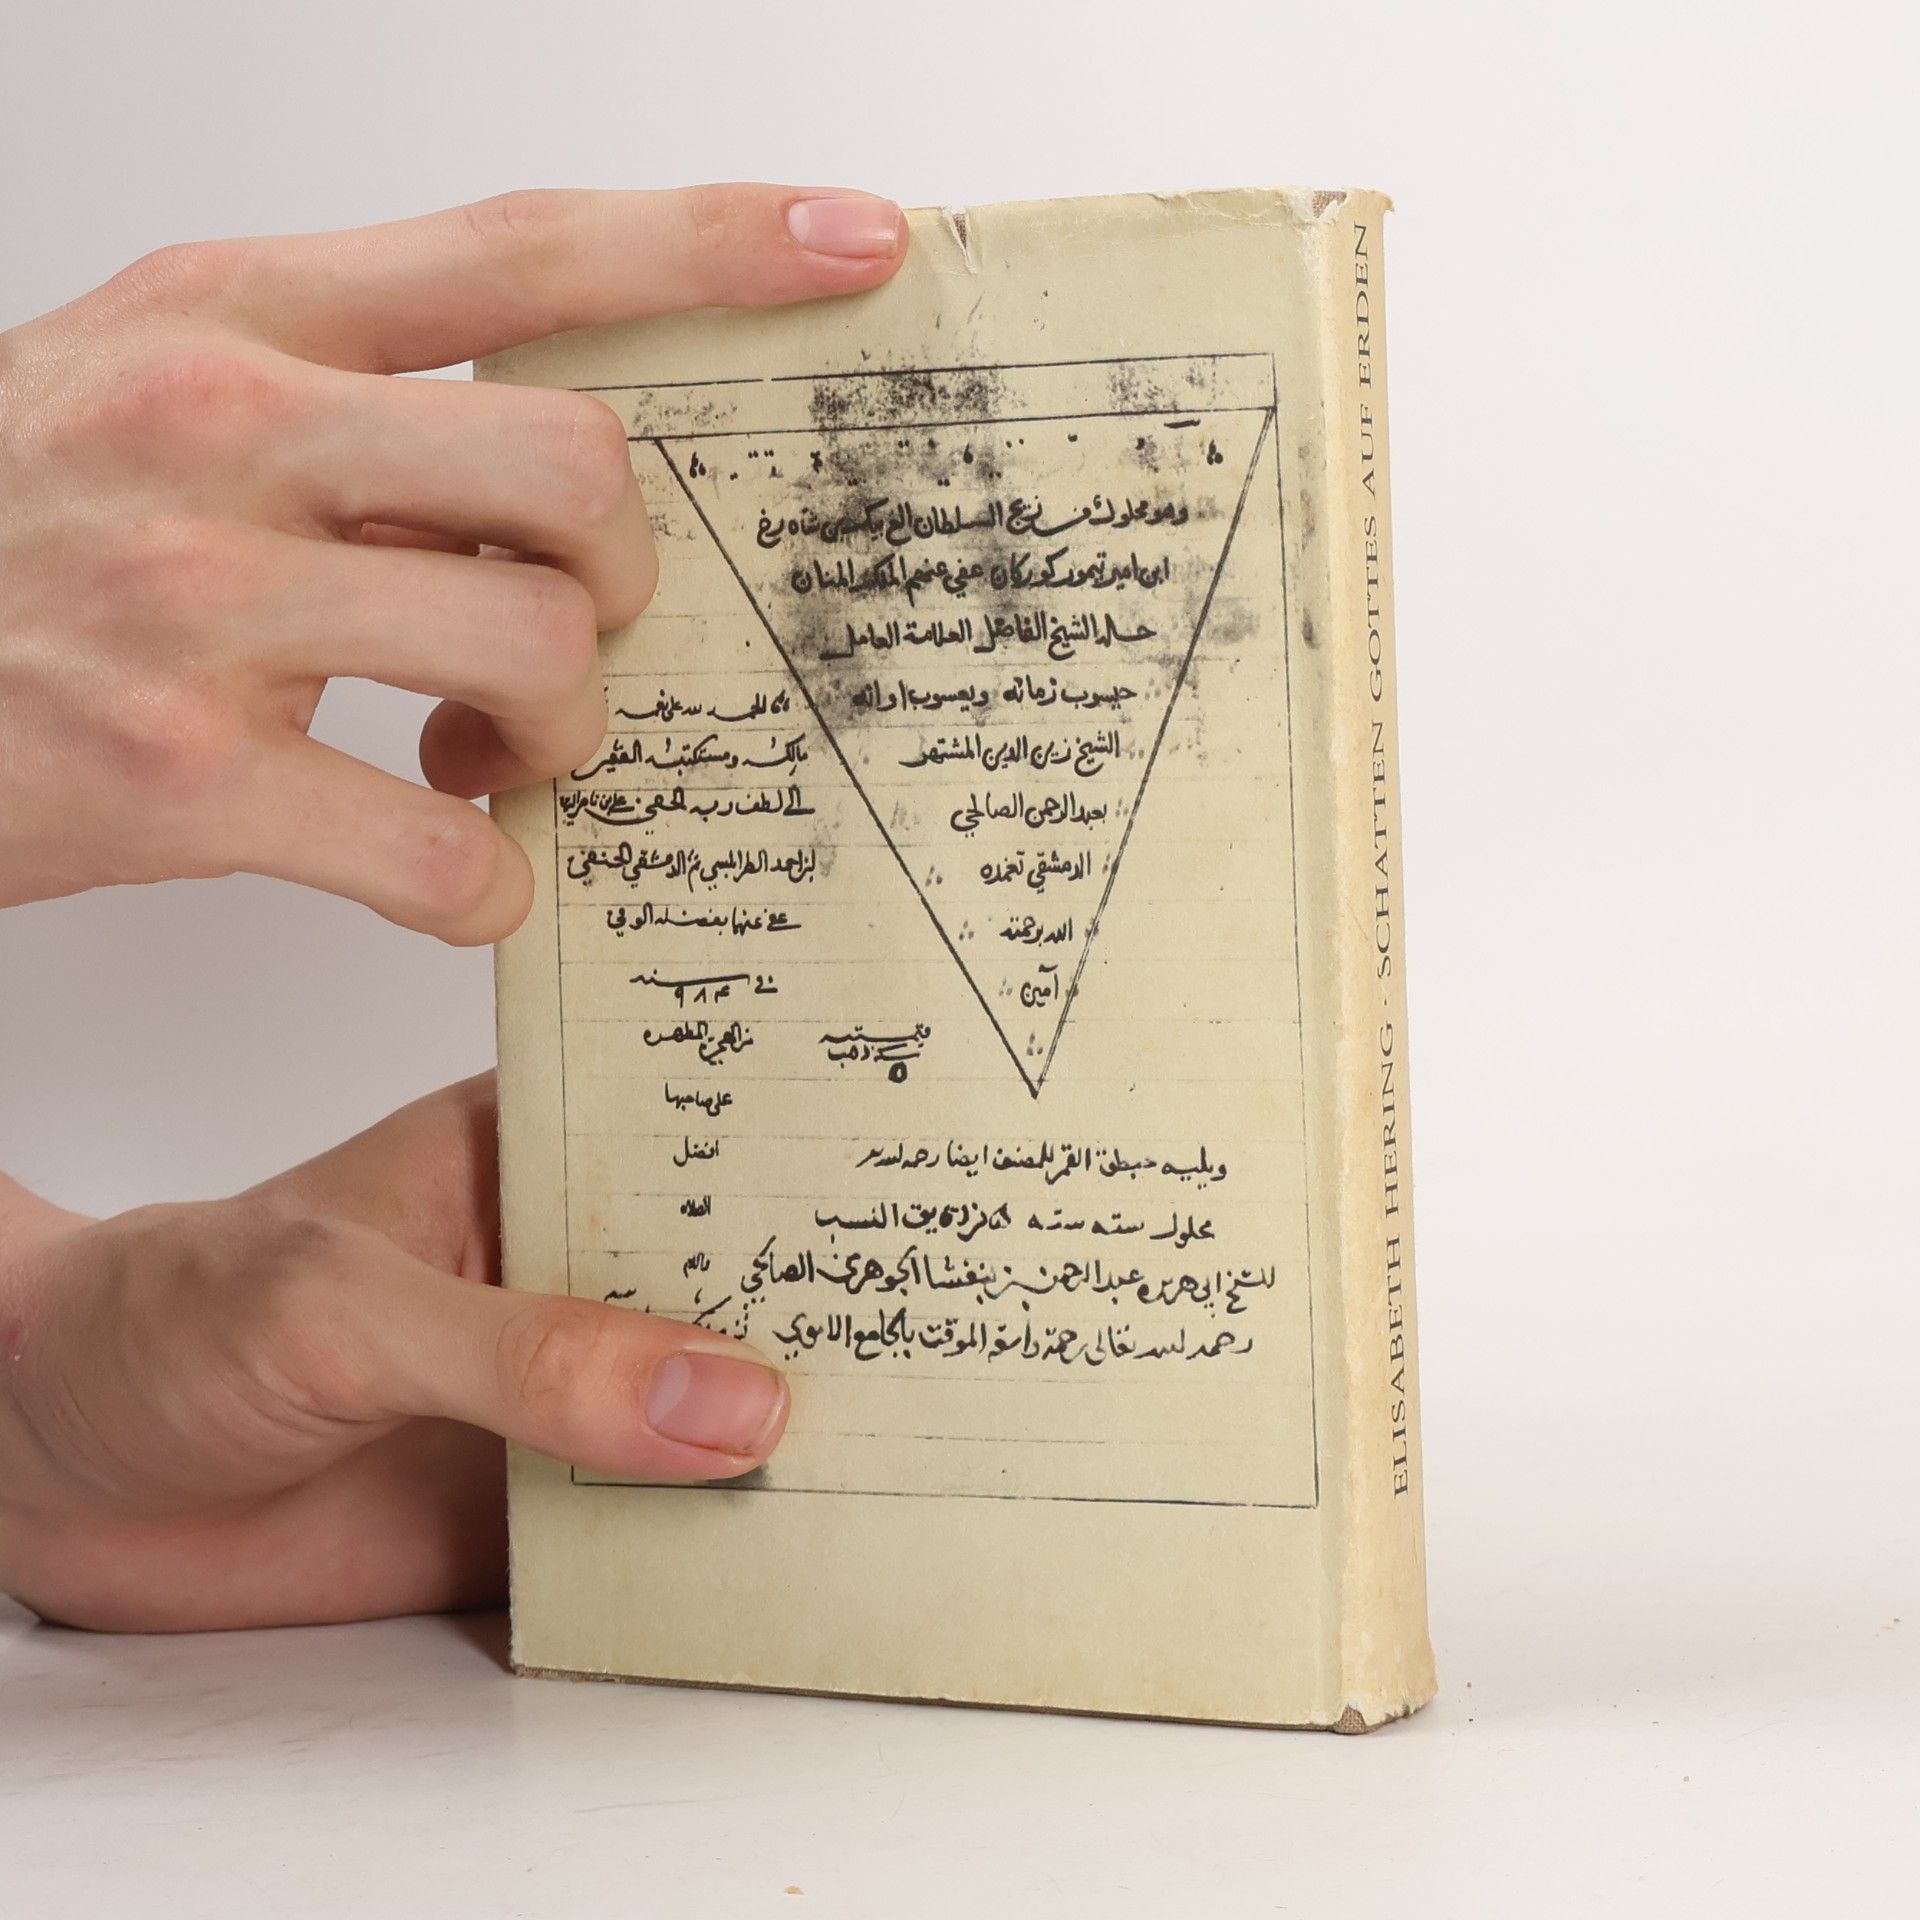 وهو محلول من زيج السلطان الغ بيك بن شاه رخ
ابن امير تيمور كوركان عفي عنهم الملك المنان
حله الشيخ الفاضل العلامة العامل
حيسوب زمانه ويعسوب اوانه
الشيخ زين الدين المشتهر
بعبد الرحمن الصالحي
الدمشقي تغمده
الله برحمته
آمين
الحمد لله على نعمه
مالكه ومستكتبه الفقير
الى لطف ربه الخفي علي بن ناصر الدين
بن احمد الطرابلسي ثم الدمشقي الحنفي
عفي عنهما بفضله الوفي
في سنة
٩٨٤
من الهجرة المطهره
على صاحبها
افضل
الصلاة
والسلام
قيمته
سكه ذهب
٥
ويليه القمر للمصنف ايضا رحمه الله
محلول سته سته النسب
للشيخ ابي هريره عبد الرحمن بن بنفشا الجوهري الصالحي
رحمه الله تعالى رحمة واسعة الموقت بالجامع الاموي
ELISABETH HERING · SCHATTEN GOTTES AUF ERDEN